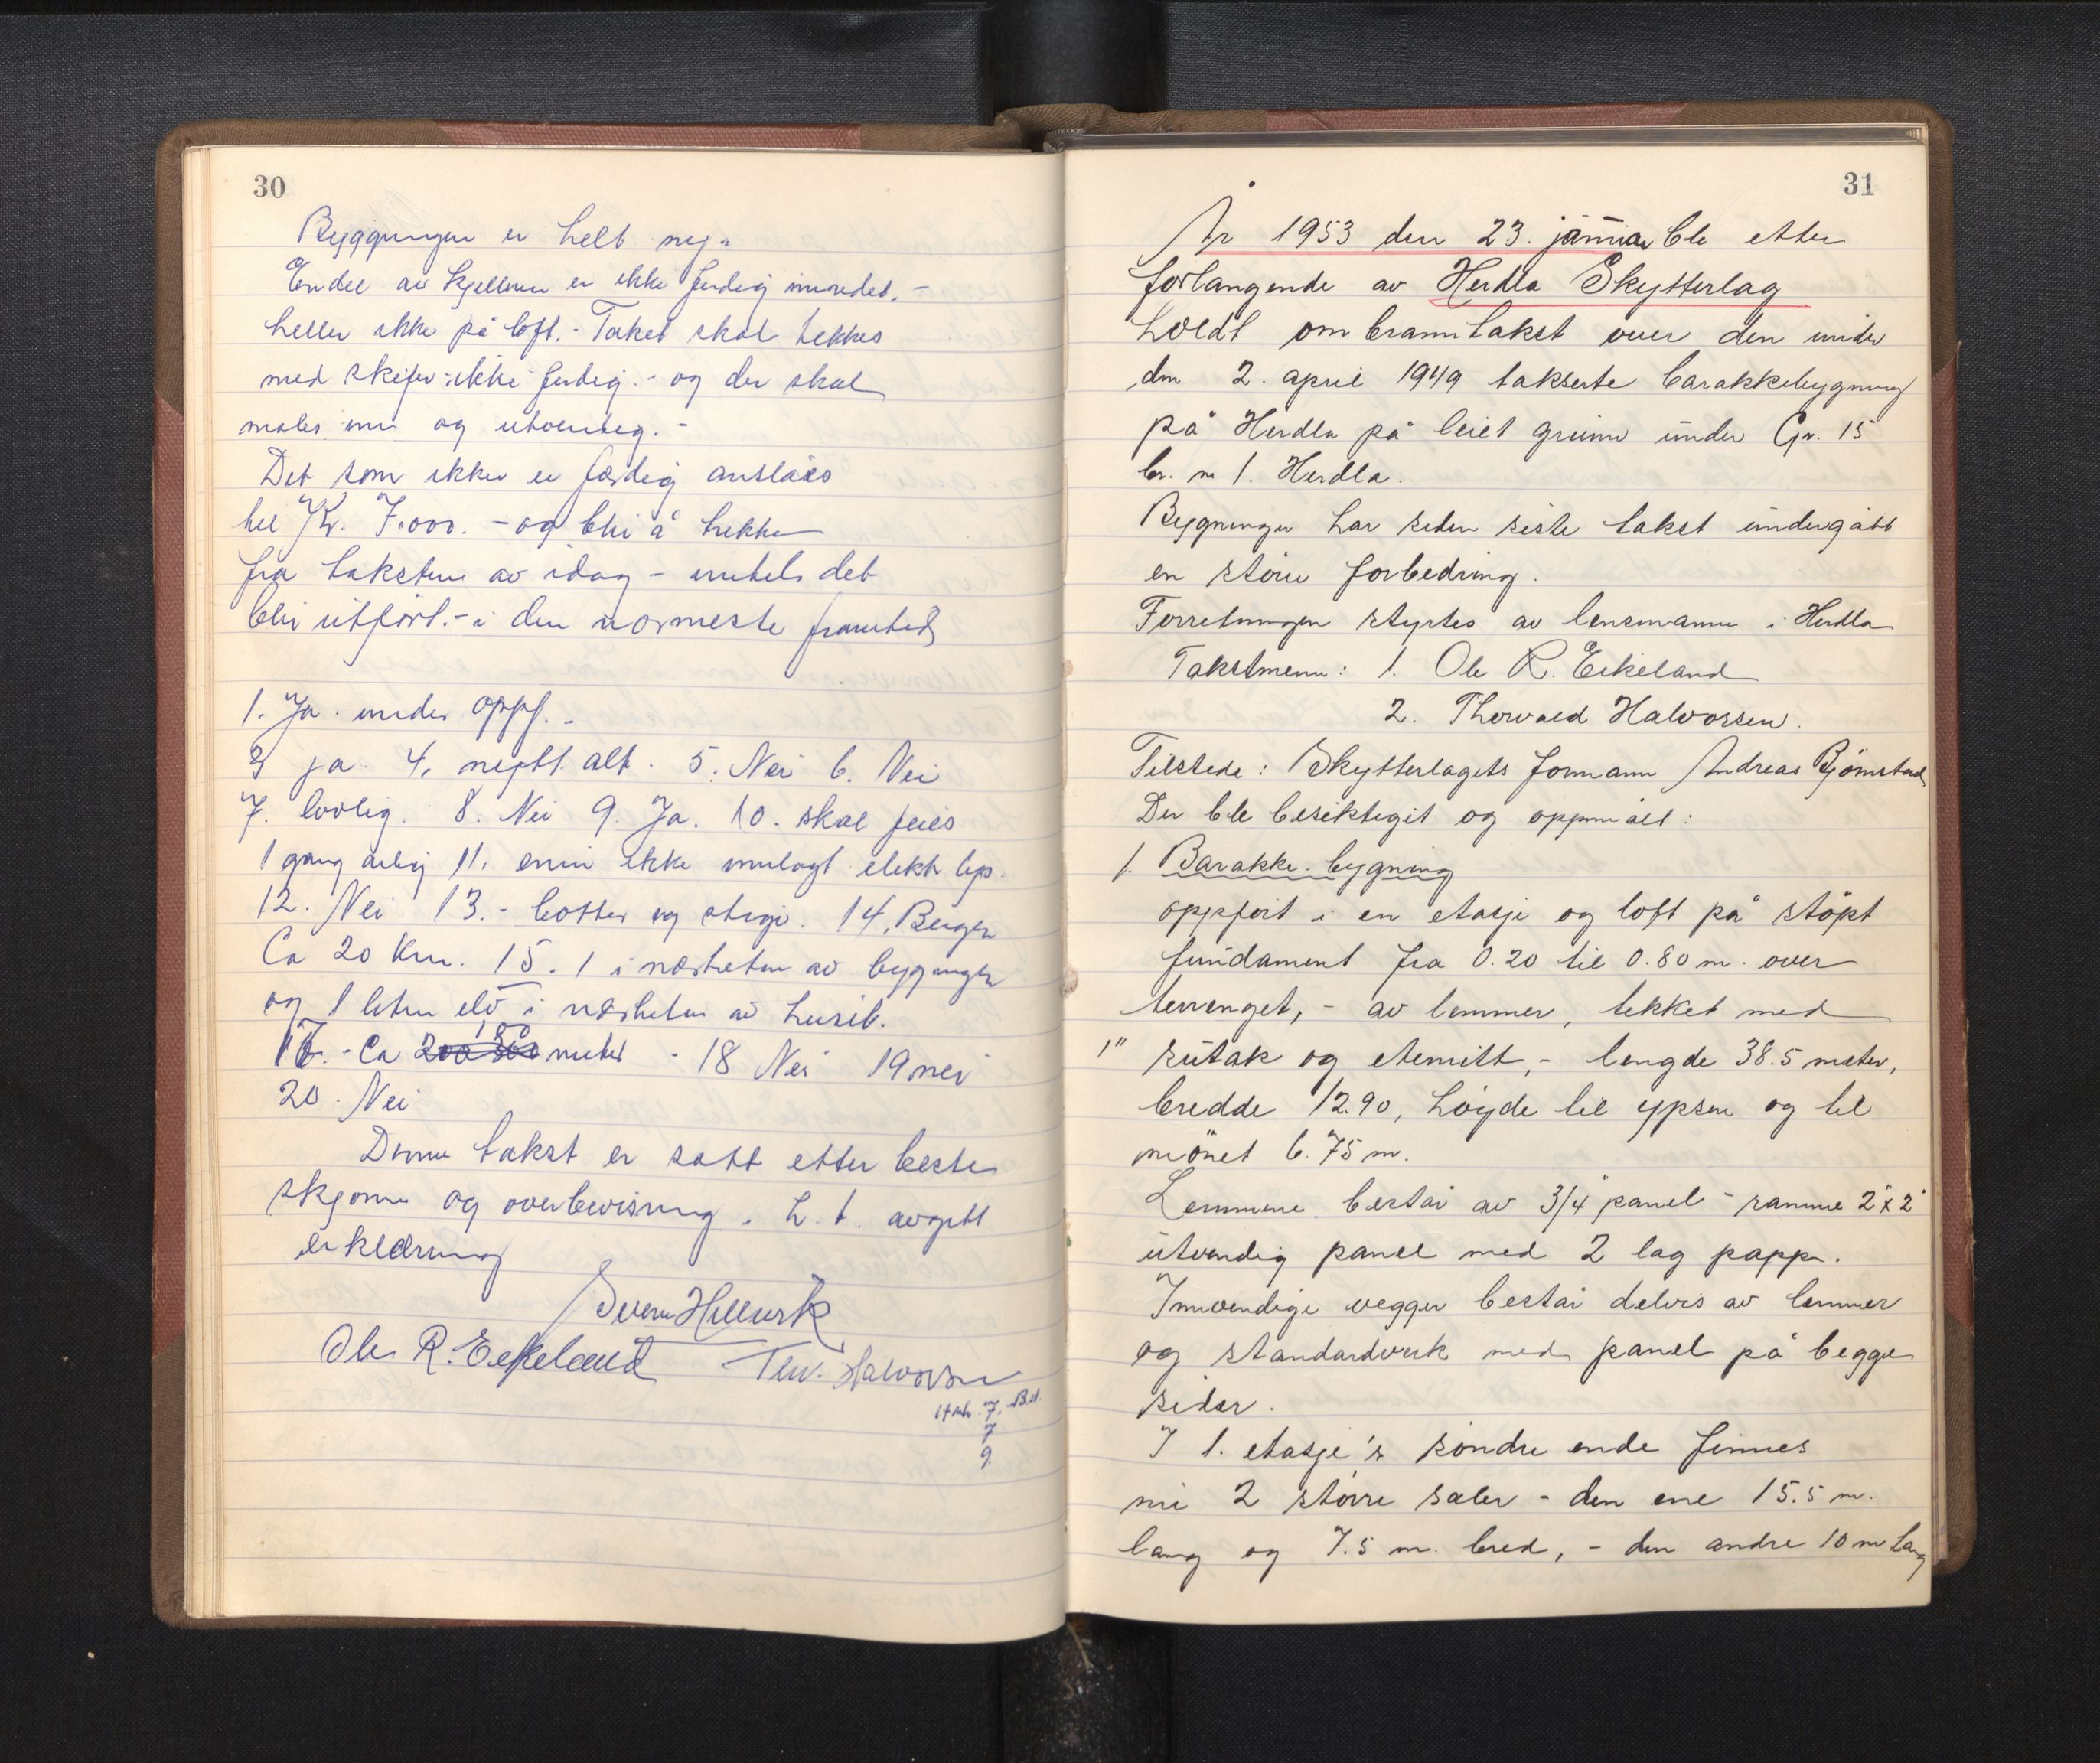 30
Byggningen er helt ny.
Endel av kjelleren er ikke ferdig innredet. -
heller ikke på loft. - Taket skal tekkes
med skifer - ikke ferdig. - og der skal
males inn og utvendig. -
Det som ikke er færdig anslåes
til Kr. 7.000. - og blir å trekke
fra taksten av idag - inntils det
blir utført. - i den nærmeste framtid
1. Ja. under oppf. -
3 ja. 4. alt. 5. Nei 6. Nei
7. lovlig. 8. Nei 9. Ja. 10. skal feies
1 gang årlig 11. ennu ikke innlagt elektr lys.
12. Nei 13. - bøtter og stige. 14. Bergen
Ca 20 Km. 15. 1 i nærheten av bygningen
og 1 liten elv i nærheten av huset.
17. - Ca 200 300 150 meter - 18 Nei 19 nei
20. Nei
Denne takst er satt etter beste
skjønn og overbevisning. h. t. avgitt
erklæring
Sverre
Ole R. Eikeland Thv. Halvorsen
7. Bil.
7
9
31
År 1953 den 23. januar ble etter
forlangende av Herdla Skytterlag
holdt ombranntakst over den under
den 2. april 1949 takserte barakkebygning
på Herdla på leiet grunn under Gr. 15
br. n 1. Herdla.
Bygningen har siden siste takst undergått
en større forbedring.
Forretningen styrtes av lensmannen i Herdla
Takstmenn: 1. Ole R. Eikeland
2. Thorvald Halvorsen.
Tilstede: Skytterlagets formann Andreas Bjørnstad
Der ble besiktiget og oppmålt:
1. Barakke-bygning
oppført i en etasje og loft på støpt
fundament fra 0.20 til 0.80 m. over
terrenget, - av lemmer, tekket med
1" sutak og eternitt, - lengde 38.5 meter,
bredde 12.90, høyde til ypsen og til
mönet 6.75 m.
Lemmene består av 3/4" panel - ramme 2"x2"
utvendig panel med 2 lag papp.
Innvendige vegger består delvis av lemmer
og standardverk med panel på begge
sider.
I 1. etasje's søndre ende finnes
nu 2 større saler - den ene 15.5 m.
lang og 7.5 m. bred, - den andre 10 m lang